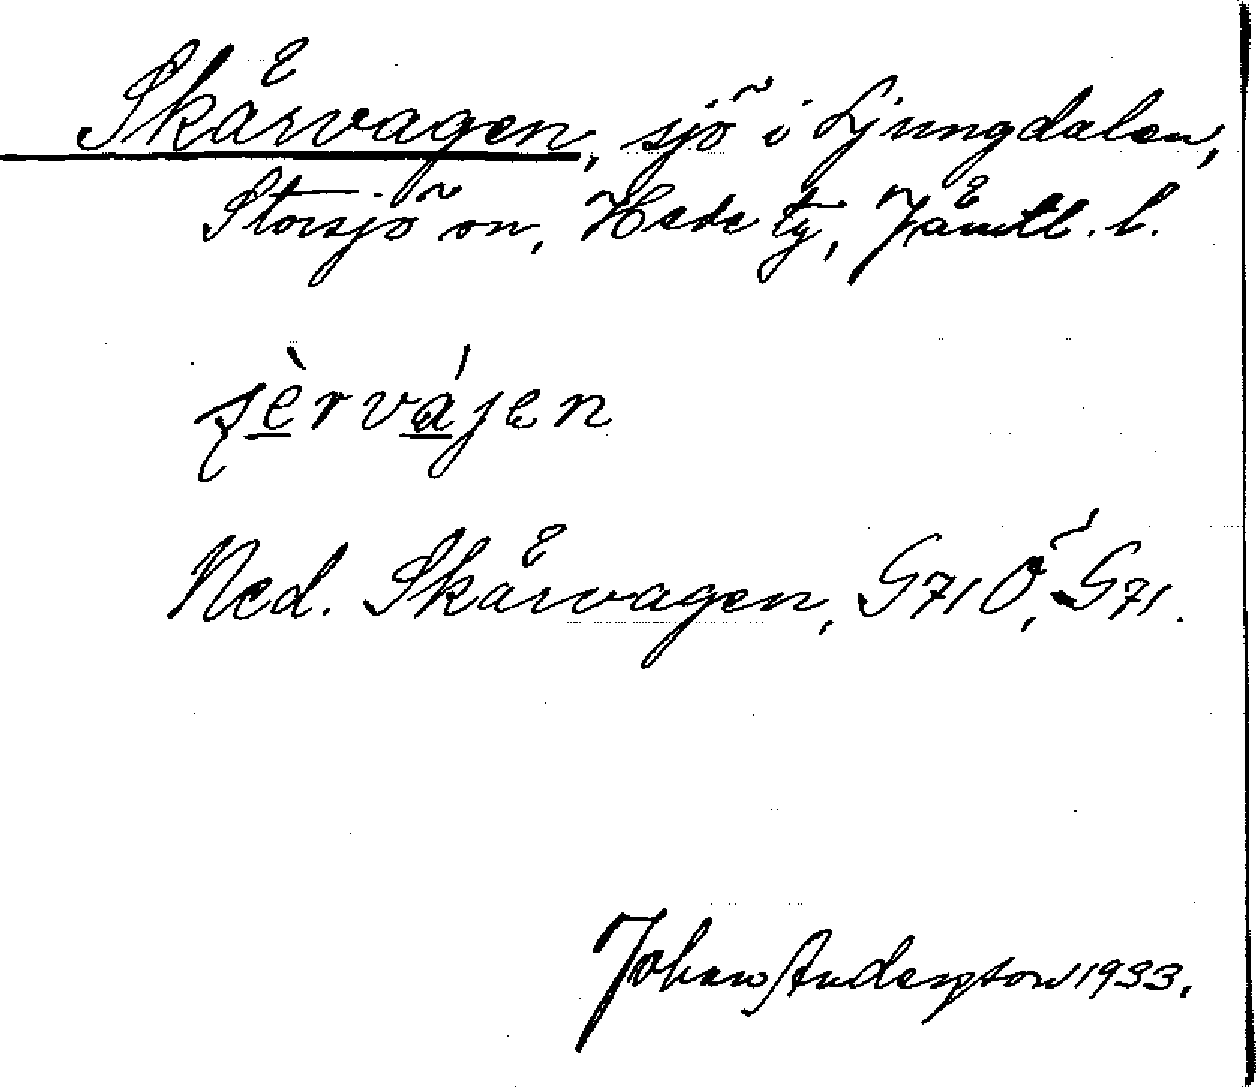 Skärvagen, sjö i Ljungdalen,
Storsjö sn, Hede tg, Jämtl. l.
ʃèrvájen
Ned. Skärvagen, G71Ö, G71.
Johan Anderzson 1933.